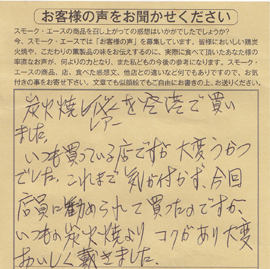 お客様の声をお聞かせください
スモーク・エースの商品を召し上がっての感想はいかがでしたでしょうか?
今、スモーク・エースでは「お客様の声」を募集しています。皆様においしい鶏炭
火焼や、こだわりの薫製品の味をお伝えするのに、実際に食べて頂いたあなた様の
率直なお声が、何よりの力となり、また私どもの今後の参考になります。スモーク・
エースの商品、店、食べた感想文、他店との違いなど何でもありますので、お気
付きの事をお寄せ下さい。文章でも似顔絵でもご自由にお書きの上、お送りください。
炭火焼レアーを
レアー
で買い
ました。
いつも買っている店ですが大変うかつ
でした。これまで気が付かず、今回
店員に勧められて買ったのですが、
いつもの炭火焼より コクがあり大変
おいしく戴きました。